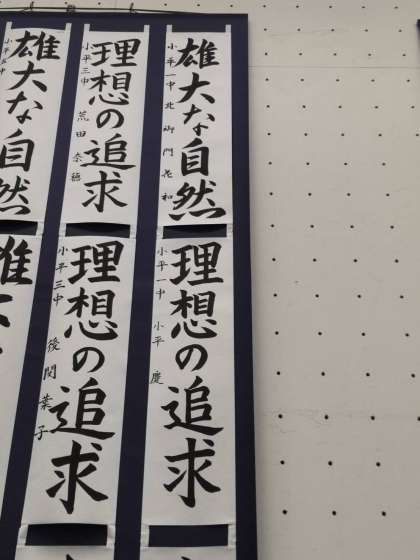 雄大な自然
小平一中 北御門 花和
理想の追求
小平三中 荒田 奈穂
雄大な自然
小平五中
理想の追求
小平一中 小平 慶
理想の追求
小平三中 後関 葉子
雄